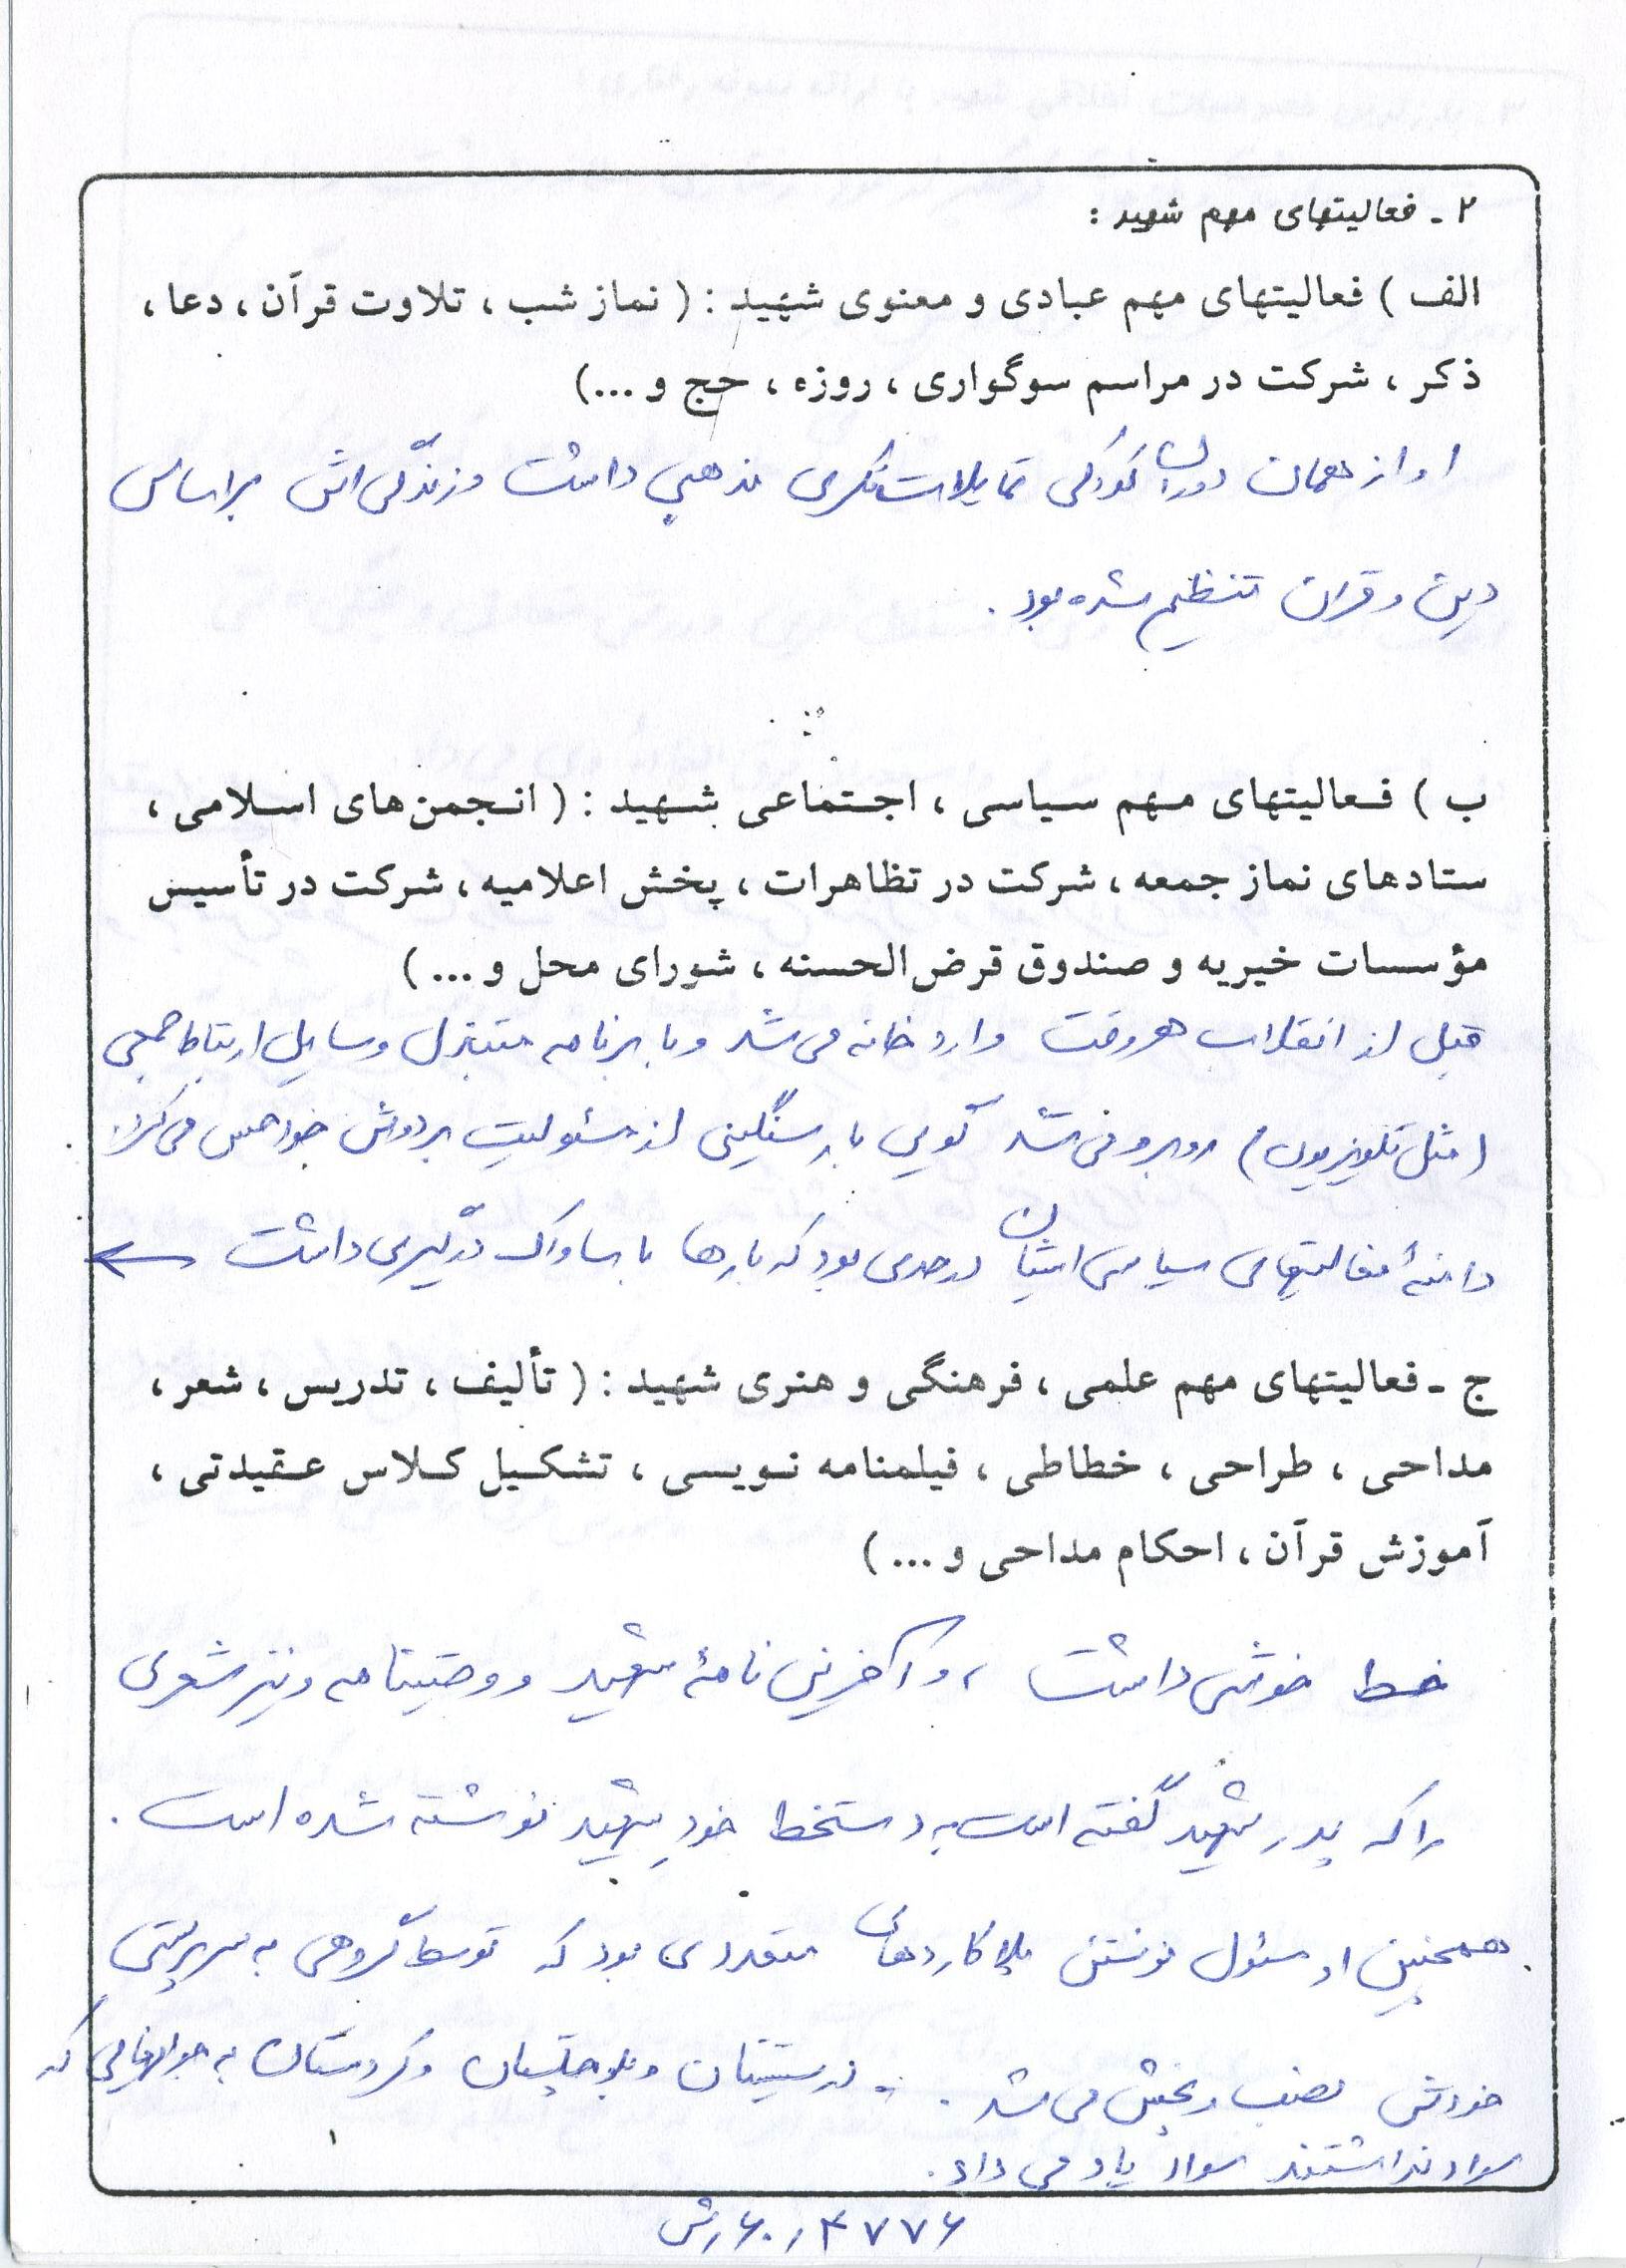 ۲ ـ فعالیتهای مهم شهید :
الف ) فعالیتهای مهم عبادی و معنوی شهید : ( نماز شب ، تلاوت قرآن ، دعا ،
ذکر ، شرکت در مراسم سوگواری ، روزه ، حج و ...)
او از همان دوران کودکی تمایلات فکری مذهبی داشت و زندگی اش براساس
دین و قران تنظیم شده بود .
ب ) فعالیتهای مهم سیاسی ، اجتماعی شهید : ( انجمن های اسلامی ،
ستادهای نماز جمعه ، شرکت در تظاهرات ، پخش اعلامیه ، شرکت در تأسیس
مؤسسات خیریه و صندوق قرض الحسنه ، شورای محل و ... )
قبل از انقلاب هر وقت وارد خانه می شد و با برنامه مبتذل وسایل ارتباط جمعی
(مثل تلویزیون) روبرو می شد گویی بار سنگینی از مسئولیت بر دوش خود حس می کرد
دامنهٔ فعالیتهای سیاسی ایشان در حدی بود که بارها با ساواک درگیری داشت ←
ج ـ فعالیتهای مهم علمی ، فرهنگی و هنری شهید : ( تألیف ، تدریس ، شعر ،
مداحی ، طراحی ، خطاطی ، فیلمنامه نویسی ، تشکیل کلاس عقیدتی ،
آموزش قرآن ، احکام مداحی و ... )
خط خوشی داشت ، و آخرین نامهٔ شهید و وصیتنامه و نیز شعری
را که پدر شهید گفته است به دستخط خودِ شهید نوشته شده است .
همچنین او مسئول نوشتن پلاکاردهای متعددی بود که توسط گروهی به سرپرستی
خودش نصب و پخش می شد . در سیستان و بلوچستان و کردستان به جوانهایی که
سواد نداشتند سواد یاد می داد .